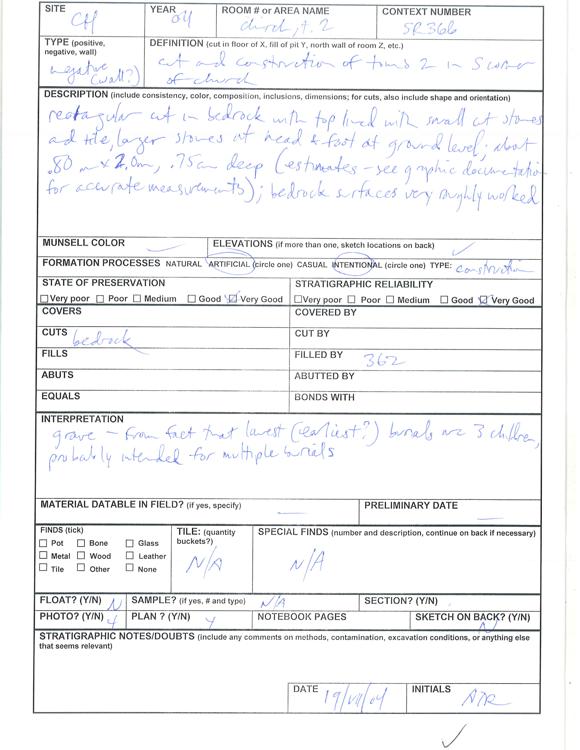 SITE CH YEAR 04 ROOM # or AREA NAME church, t. 2 CONTEXT NUMBER SR366
TYPE (positive, negative, wall) negative (wall?) DEFINITION (cut in floor of X, fill of pit Y, north wall of room Z, etc.)
cut and construction of tomb 2 in S corner
of church
DESCRIPTION (include consistency, color, composition, inclusions, dimensions; for cuts, also include shape and orientation)
rectagular cut in bedrock with top lined with small cut stones
and tile, larger stones at head & foot at ground level; about
.80 m x 2.0m, .75cm deep (estimates - see graphic documentation
for accurate measurements); bedrock surfaces very roughly worked
MUNSELL COLOR ELEVATIONS (if more than one, sketch locations on back) ✓
FORMATION PROCESSES NATURAL ARTIFICIAL (circle one) CASUAL INTENTIONAL (circle one) TYPE: construction
STATE OF PRESERVATION STRATIGRAPHIC RELIABILITY
☐Very poor ☐Poor ☐Medium ☐Good ☑Very Good ☐Very poor ☐Poor ☐Medium ☐Good ☑Very Good
COVERS COVERED BY
CUTS bedrock CUT BY
FILLS FILLED BY 362
ABUTS ABUTTED BY
EQUALS BONDS WITH
INTERPRETATION
grave - from fact that lowest (earliest?) burials are 3 children,
probably intended for multiple burials
MATERIAL DATABLE IN FIELD? (if yes, specify) — PRELIMINARY DATE —
FINDS (tick) TILE: (quantity buckets?) N/A SPECIAL FINDS (number and description, continue on back if necessary) N/A
☐ Pot ☐ Bone ☐ Glass
☐ Metal ☐ Wood ☐ Leather
☐ Tile ☐ Other ☐ None
FLOAT? (Y/N) N SAMPLE? (if yes, # and type) N/A SECTION? (Y/N)
PHOTO? (Y/N) Y PLAN ? (Y/N) Y NOTEBOOK PAGES SKETCH ON BACK? (Y/N) N
STRATIGRAPHIC NOTES/DOUBTS (include any comments on methods, contamination, excavation conditions, or anything else
that seems relevant)
DATE 19/VII/04 INITIALS
✓